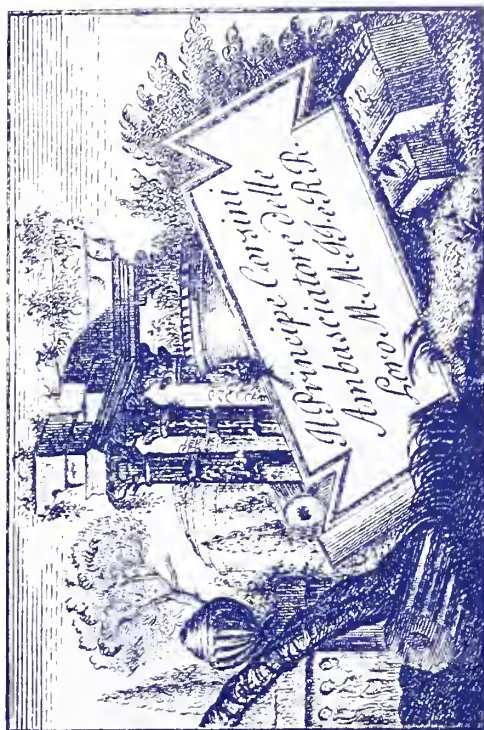 Il Principe Corsini
Ambasciatore delle
Loro M. M. II. e R. R.